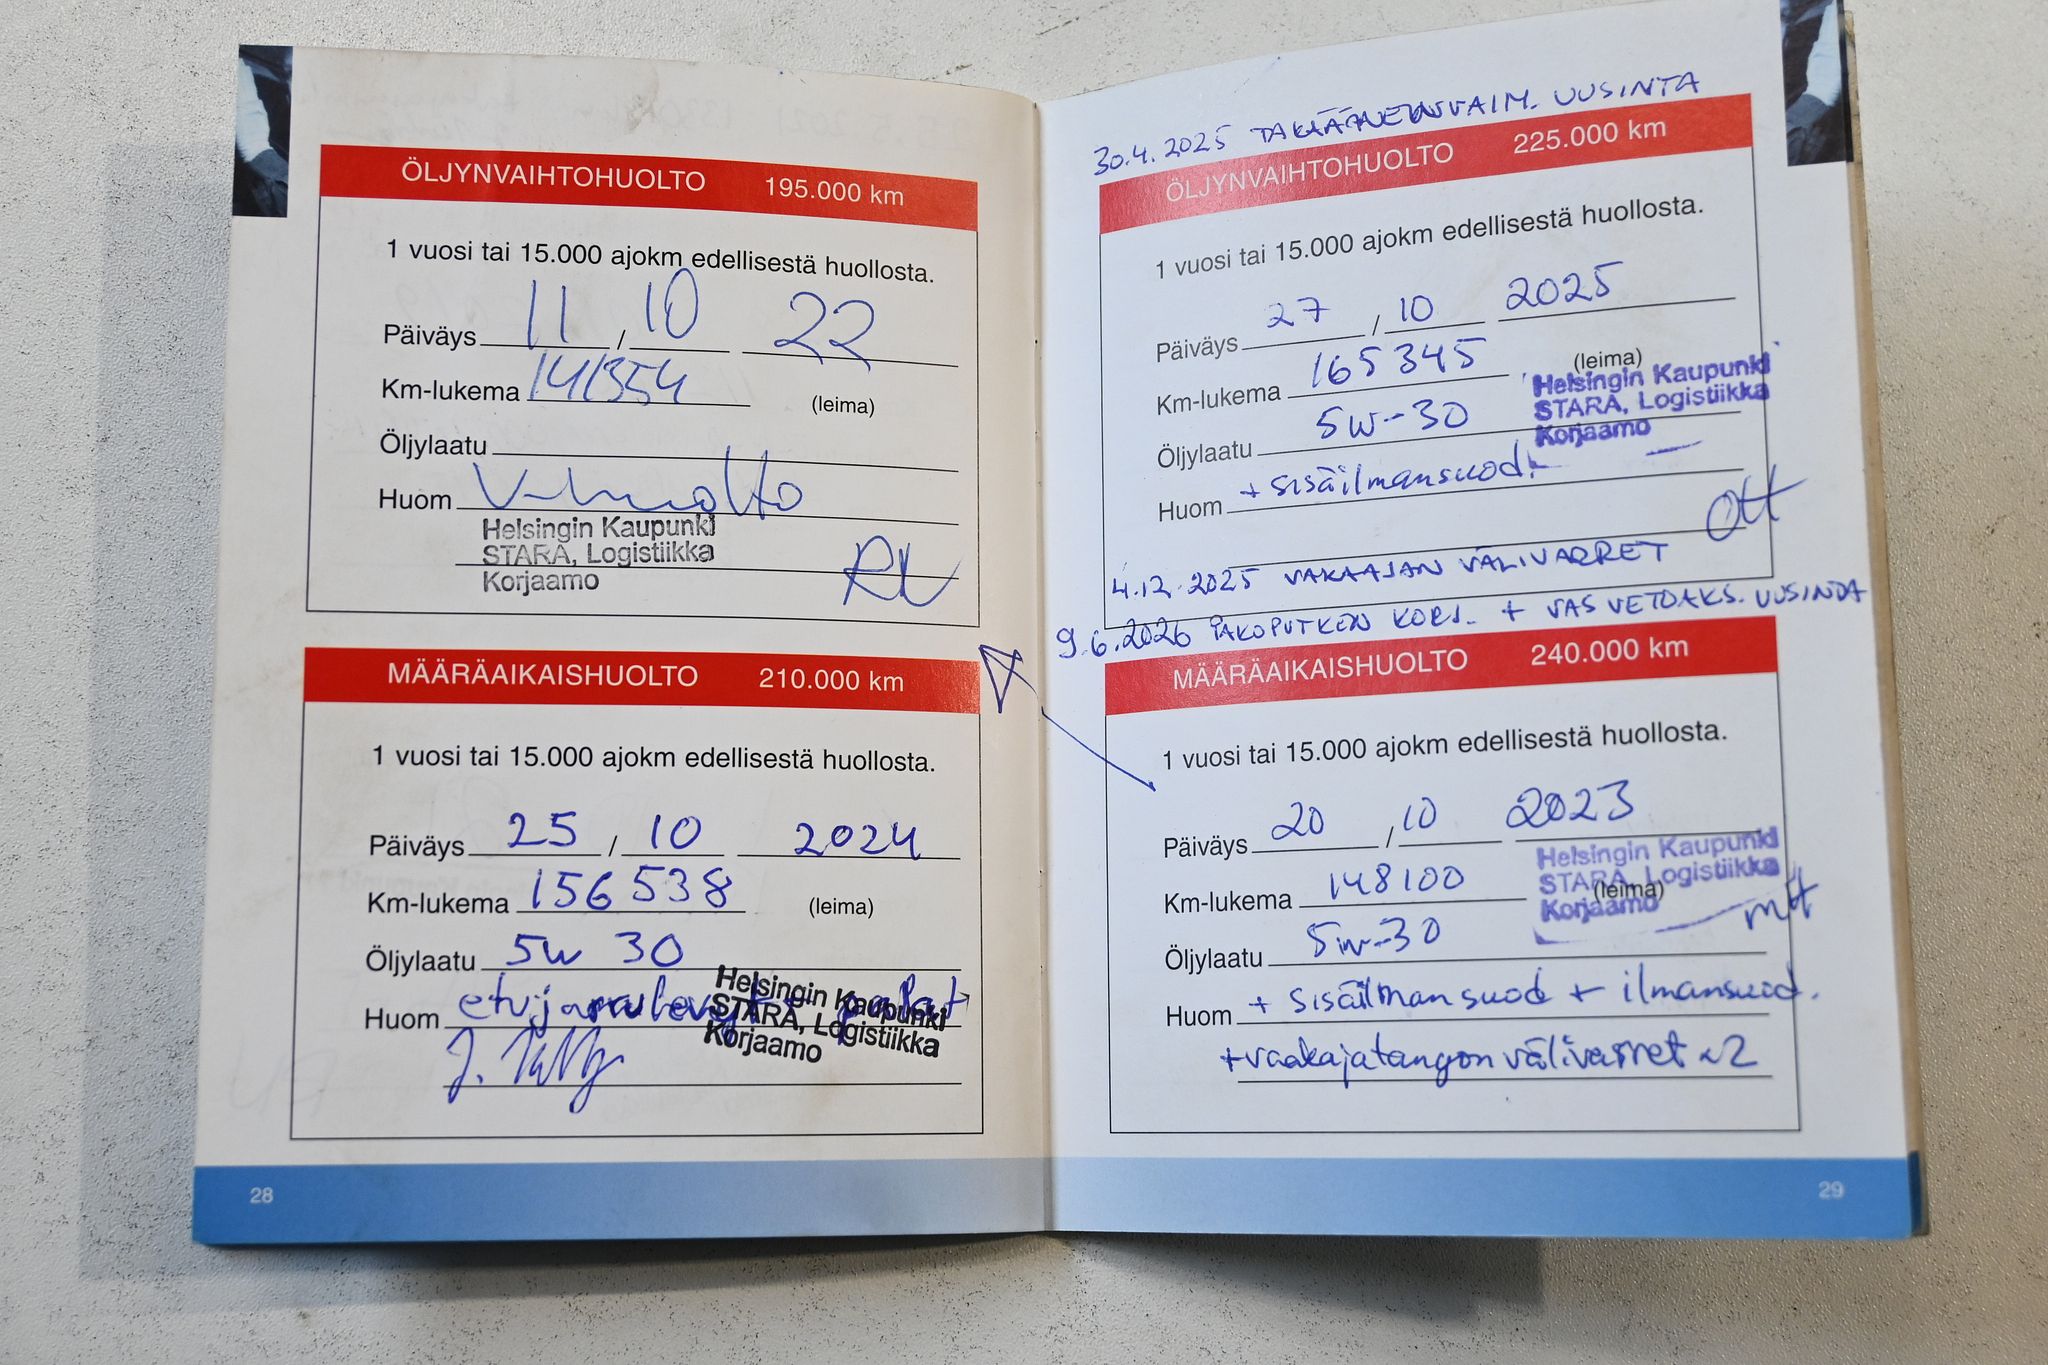 ÖLJYNVAIHTOHUOLTO 195.000 km
1 vuosi tai 15.000 ajokm edellisestä huollosta.
Päiväys 11 / 10 22
Km-lukema 141354
(leima)
Öljylaatu
Huom V-huolto
Helsingin Kaupunki
STARA, Logistiikka
Korjaamo
MÄÄRÄAIKAISHUOLTO 210.000 km
1 vuosi tai 15.000 ajokm edellisestä huollosta.
Päiväys 25 / 10 2024
Km-lukema 156538
(leima)
Öljylaatu 5w 30
Huom etujarrulevyt + palat
Helsingin Kaupunki
STARA, Logistiikka
Korjaamo
28
30.4.2025 TAKAÄÄNENVAIM. UUSINTA
ÖLJYNVAIHTOHUOLTO 225.000 km
1 vuosi tai 15.000 ajokm edellisestä huollosta.
Päiväys 27 / 10 2025
Km-lukema 165345
(leima)
Helsingin Kaupunki
STARA, Logistiikka
Korjaamo
Öljylaatu 5w-30
Huom + sisäilmansuod.
4.12.2025 VAKAAJAN VÄLIVARRET
9.6.2026 PAKOPUTKEN KORJ. + VAS VETOAKS. UUSINTA
MÄÄRÄAIKAISHUOLTO 240.000 km
1 vuosi tai 15.000 ajokm edellisestä huollosta.
Päiväys 20 / 10 2023
Km-lukema 148100
(leima)
Helsingin Kaupunki
STARA, Logistiikka
Korjaamo
Öljylaatu 5w-30
Huom + sisäilmansuod + ilmansuod.
+vaakajatangon välivarret x2
29